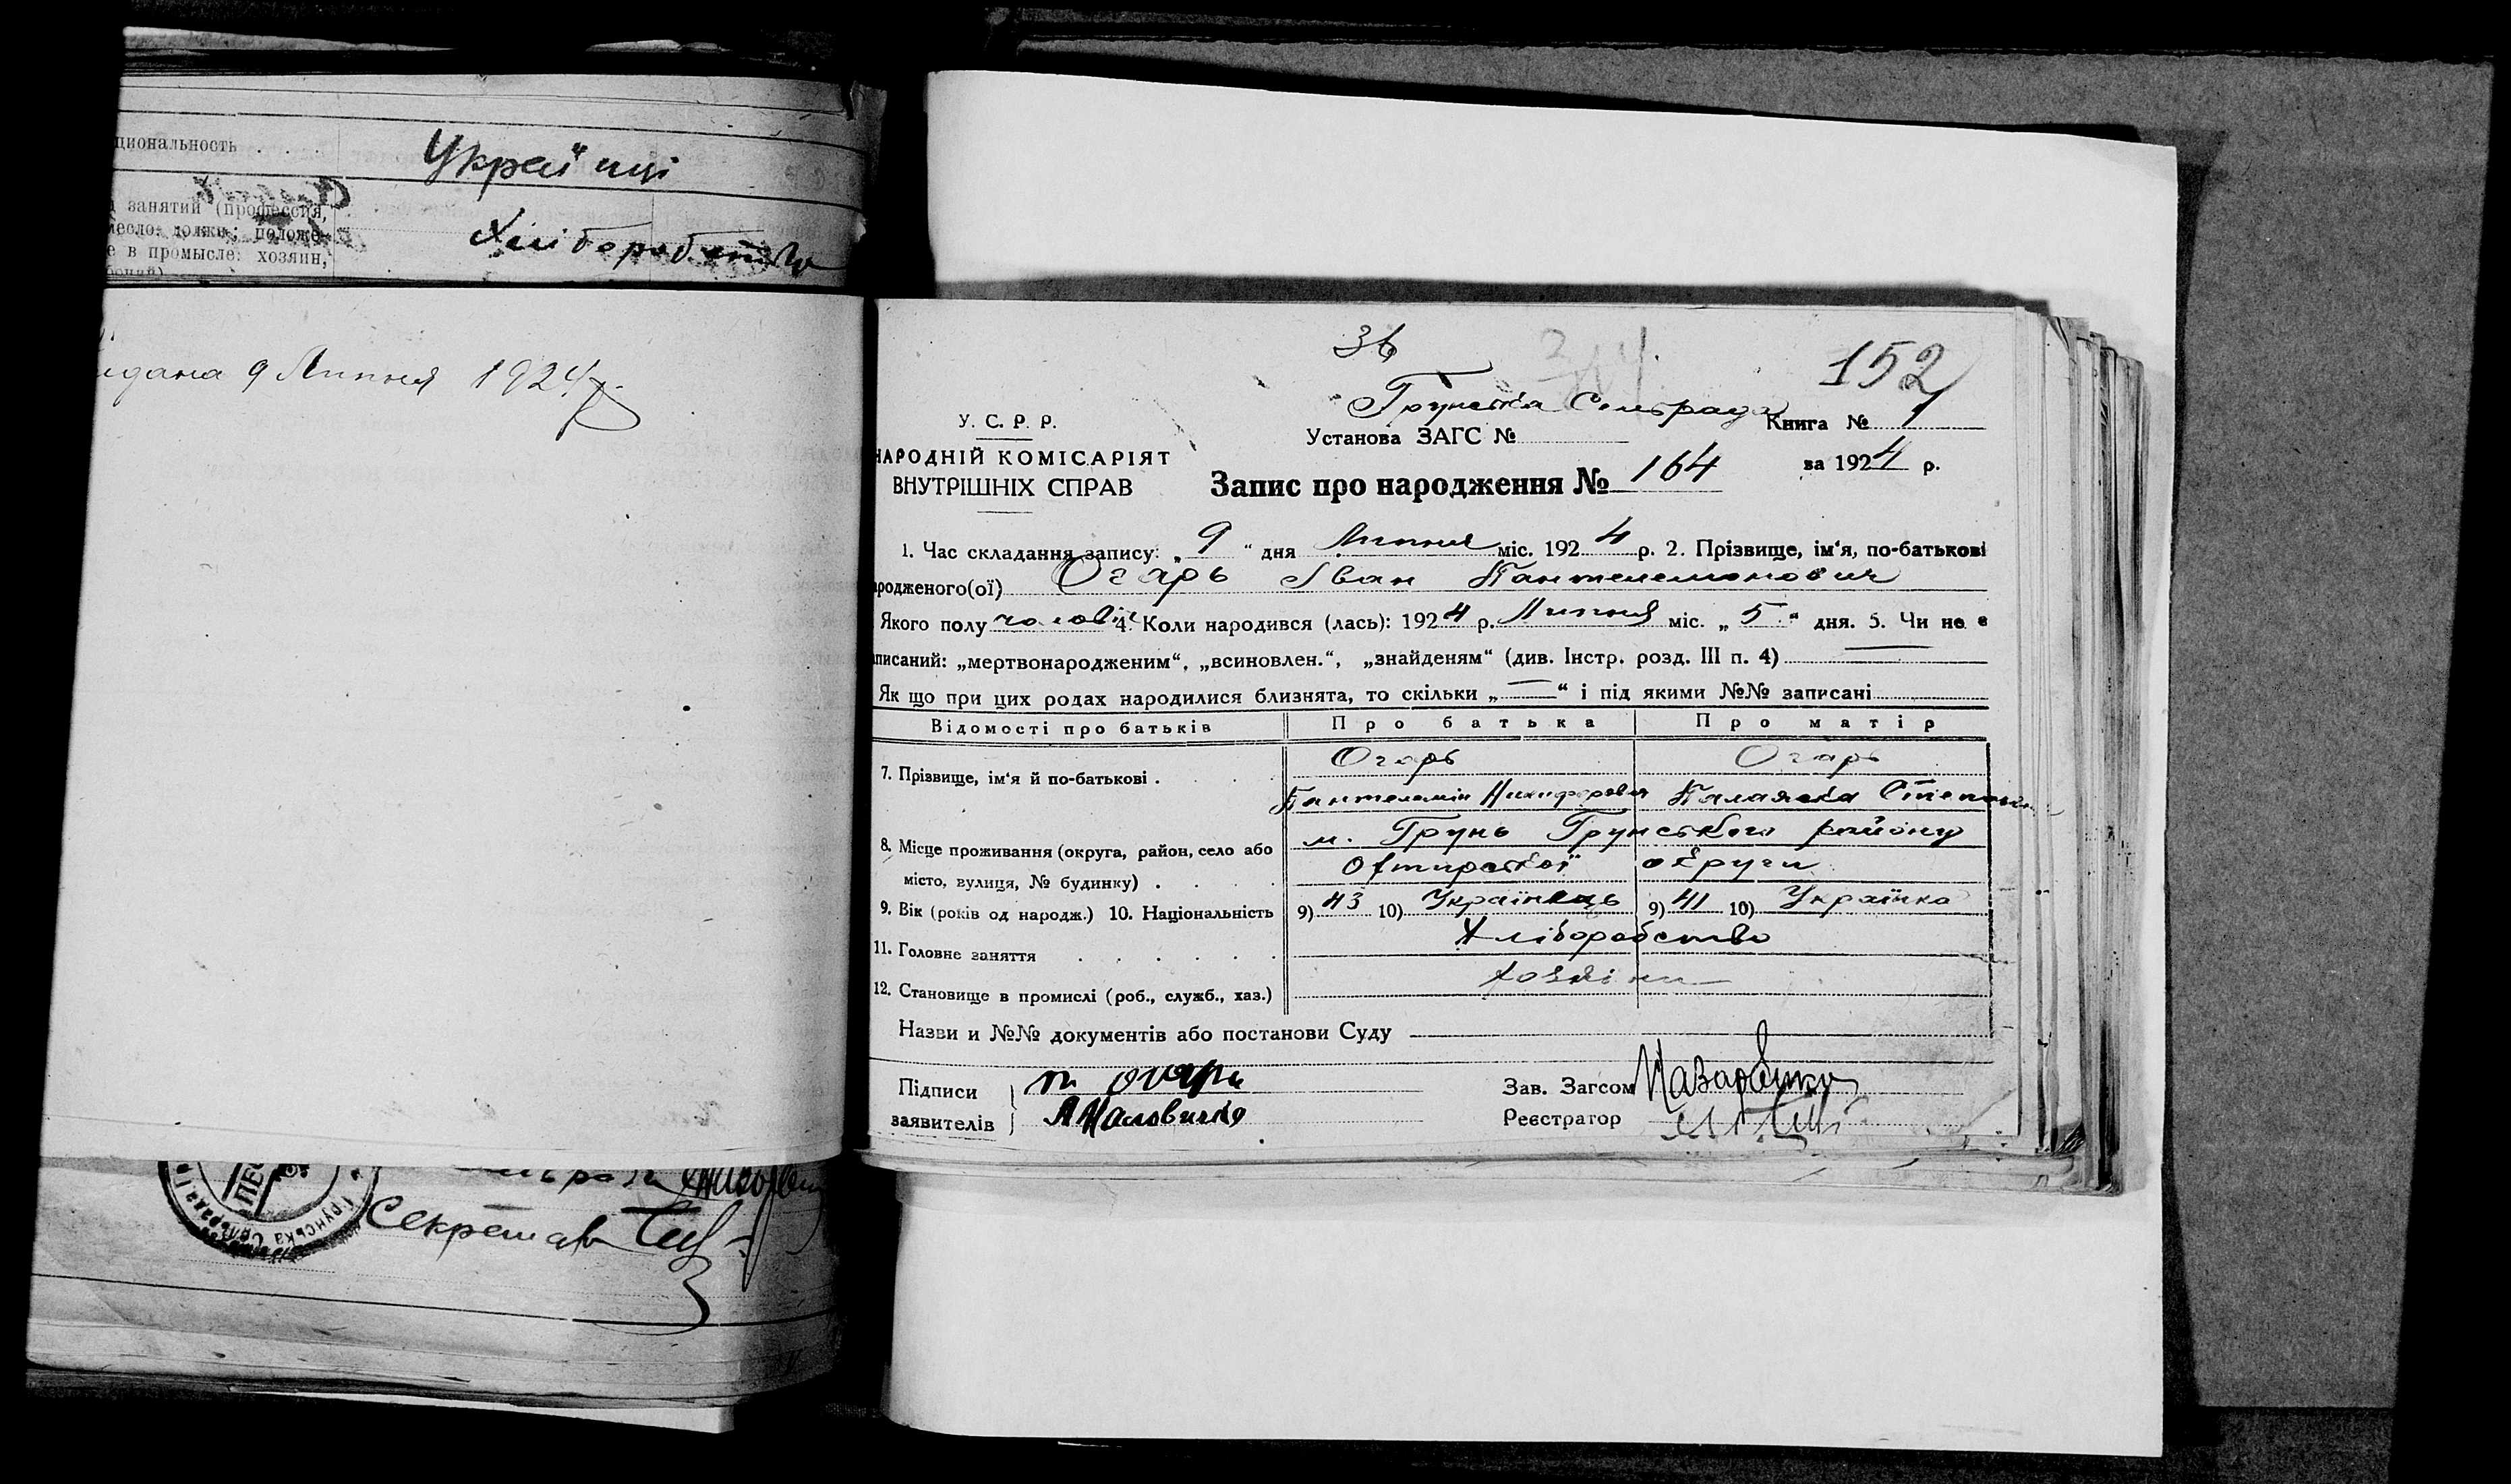 циональность . . .
Українці
занятий (профессия,
месло: должн; положе-
е в промысле: хозяин,
Хліборобство
идана 9 Липня 1924 р.
Грунська Сельрада
Секретарь
36
152
Грунська Сельрада
Книга № 1
У. С. Р. Р.
Установа ЗАГС №
НАРОДНІЙ КОМІСАРІЯТ
ВНУТРІШНІХ СПРАВ
за 1924 р.
Запис про народження № 164
1. Час складання запису: „ 9 “ дня Липня міс. 1924 р. 2. Прізвище, ім‘я, по-батькові
родженого(ої) Огарь Іван Пантелемонович
Якого полу чоловіч 4. Коли народився (лась): 1924 р. Липня міс. „ 5 “ дня. 5. Чи не є
аписаний: „мертвонародженим“, „всиновлен.“, „знайденям“ (див. Інстр. розд. III п. 4) —
Як що при цих родах народилися близнята, то скільки „ — “ і під якими №№ записані
Відомості про батьків Про батька Про матір
7. Прізвище, ім‘я й по-батькові .
Огарь Огарь
Пантелемін Никифорович Палажка Степан
8. Місце проживання (округа, район, село або
місто, вулиця, № будинку) .
м. Грунь Грунського району
Охтирської округи
9. Вік (років од народж.) 10. Національність 9) 43 10) Українець 9) 41 10) Українка
11. Головне заняття Хліборобство
12. Становище в промислі (роб., служб., хаз.) хозяіни
Назви и №№ документів або постанови Суду —
Підписи
заявителів
п огарь
Зав. Загсом Назаренко
Реєстратор